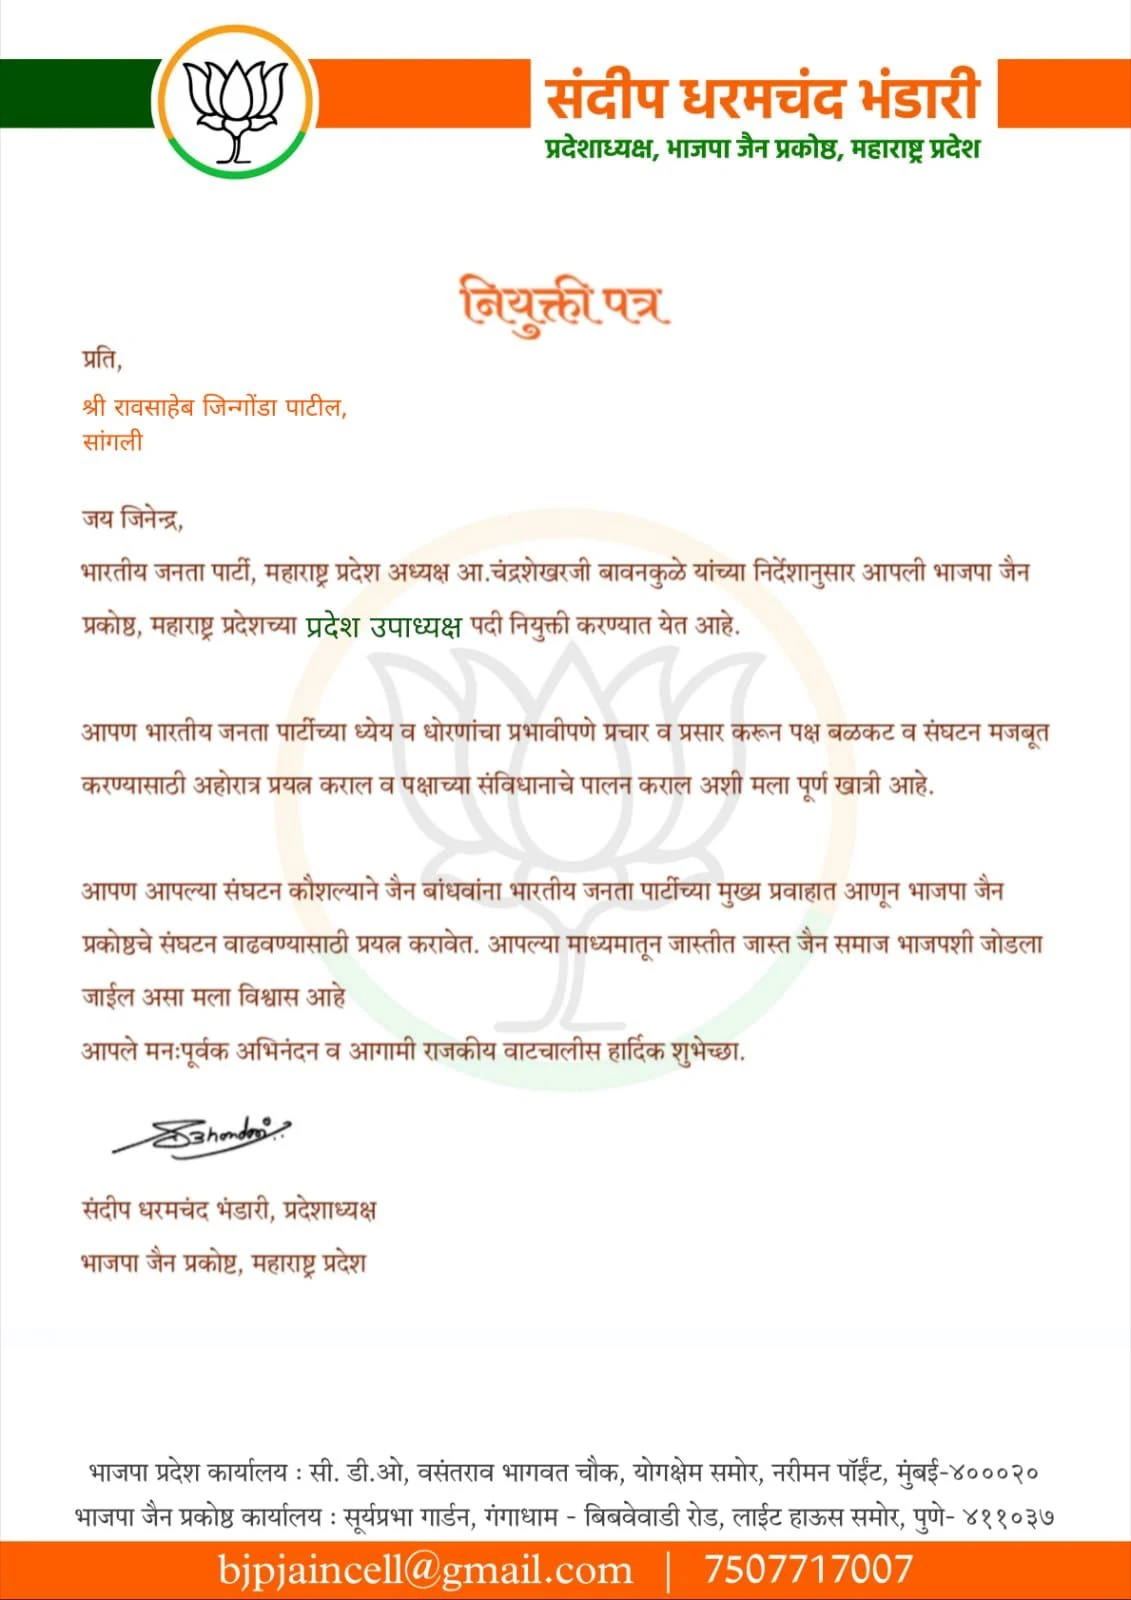 संदीप धरमचंद भंडारी
प्रदेशाध्यक्ष, भाजपा जैन प्रकोष्ठ, महाराष्ट्र प्रदेश
नियुक्ती पत्र
प्रति,
श्री रावसाहेब जिन्गोंडा पाटील,
सांगली
जय जिनेन्द्र,
भारतीय जनता पार्टी, महाराष्ट्र प्रदेश अध्यक्ष आ.चंद्रशेखरजी बावनकुळे यांच्या निर्देशानुसार आपली भाजपा जैन
प्रकोष्ठ, महाराष्ट्र प्रदेशच्या प्रदेश उपाध्यक्ष पदी नियुक्ती करण्यात येत आहे.
आपण भारतीय जनता पार्टीच्या ध्येय व धोरणांचा प्रभावीपणे प्रचार व प्रसार करून पक्ष बळकट व संघटन मजबूत
करण्यासाठी अहोरात्र प्रयत्न कराल व पक्षाच्या संविधानाचे पालन कराल अशी मला पूर्ण खात्री आहे.
आपण आपल्या संघटन कौशल्याने जैन बांधवांना भारतीय जनता पार्टीच्या मुख्य प्रवाहात आणून भाजपा जैन
प्रकोष्ठचे संघटन वाढवण्यासाठी प्रयत्न करावेत. आपल्या माध्यमातून जास्तीत जास्त जैन समाज भाजपशी जोडला
जाईल असा मला विश्वास आहे
आपले मनःपूर्वक अभिनंदन व आगामी राजकीय वाटचालीस हार्दिक शुभेच्छा.
संदीप धरमचंद भंडारी, प्रदेशाध्यक्ष
भाजपा जैन प्रकोष्ट, महाराष्ट्र प्रदेश
भाजपा प्रदेश कार्यालय : सी. डी.ओ, वसंतराव भागवत चौक, योगक्षेम समोर, नरीमन पॉईंट, मुंबई-४०००२०
भाजपा जैन प्रकोष्ठ कार्यालय : सूर्यप्रभा गार्डन, गंगाधाम - बिबवेवाडी रोड, लाईट हाऊस समोर, पुणे- ४११०३७
bjpjaincell@gmail.com | 7507717007